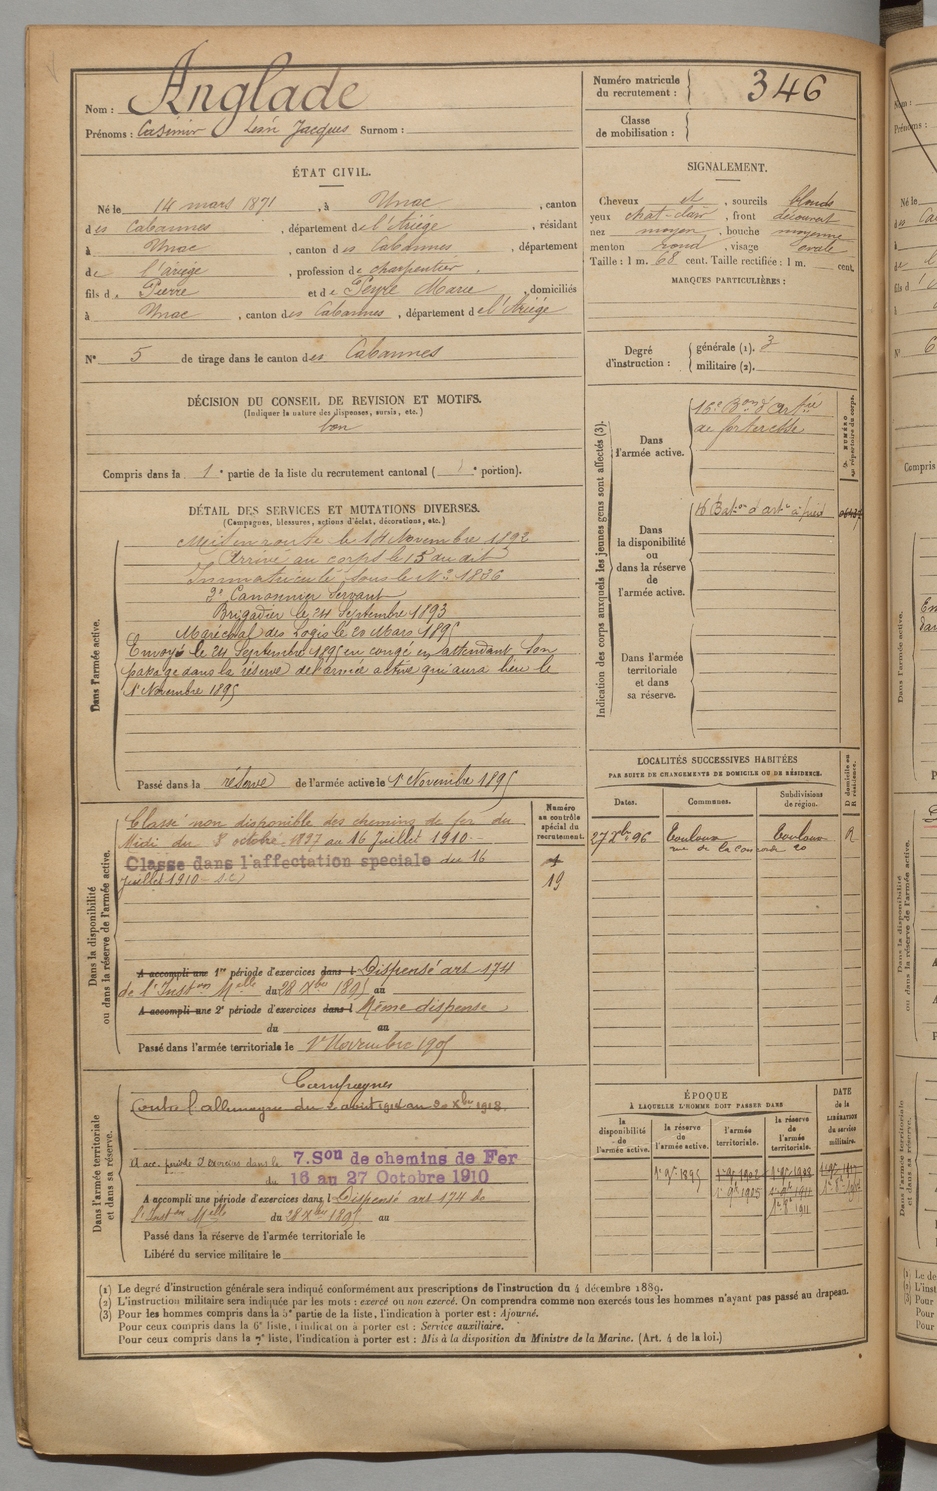 Nom : Anglade
Prénoms : Casimir Léon Jacques Surnom :
Numéro matricule du recrutement : 346
Classe de mobilisation :
ÉTAT CIVIL.
Né le 14 mars 1871, à Unac, canton
des Cabannes, département de l'Ariège, résidant
à Unac, canton des Cabannes, département
de l'Ariège, profession de charpentier.
fils de Pierre et de Peyre Marie, domiciliés
à Unac, canton des Cabannes, département de l'Ariège
N° 5 de tirage dans le canton des Cabannes
SIGNALEMENT.
Cheveux et, sourcils blonds
yeux chat-clair, front découvert
nez moyen, bouche moyenne
menton rond, visage ovale
Taille : 1 m. 68 cent. Taille rectifiée : 1 m. cent.
MARQUES PARTICULIÈRES :
Degré d'instruction : générale (1). 3
militaire (2).
DÉCISION DU CONSEIL DE REVISION ET MOTIFS.
(Indiquer la nature des dispenses, sursis, etc.)
bon
Compris dans la 1e partie de la liste du recrutement cantonal ( e portion).
DÉTAIL DES SERVICES ET MUTATIONS DIVERSES.
(Campagnes, blessures, actions d'éclat, décorations, etc.)
Dans l'armée active.
Mis en route le 14 Novembre 1892
Arrivé au corps le 15 du dit
Immatriculé sous le N° 1836
2e Canonnier Servant
Brigadier le 24 Septembre 1893
Maréchal des Logis le 20 Mars 1895
Envoyé le 24 Septembre 1895 en congé en attendant son
passage dans la réserve de l'armée active qui aura lieu le
1er Novembre 1895
Passé dans la réserve de l'armée active le 1er Novembre 1895
Indication des corps auxquels les jeunes gens sont affectés (3).
NUMÉRO au répertoire du corps.
Dans l'armée active.
16e Bon d'Artie
de forteresse
Dans la disponibilité ou dans la réserve de l'armée active.
16 Baton d'arte à pied
Dans l'armée territoriale et dans sa réserve.
LOCALITÉS SUCCESSIVES HABITÉES
PAR SUITE DE CHANGEMENTS DE DOMICILE OU DE RÉSIDENCE.
Dates. Communes. Subdivisions de région. D domicile ou R résidence.
27 Xbre 96 Toulouse Toulouse R
rue de la Concorde 20
Dans la disponibilité ou dans la réserve de l'armée active.
Numéro au contrôle spécial du recrutement.
Classé non disponible des chemins de fer du
Midi du 8 octobre 1897 au 16 Juillet 1910.-
Classe dans l'affectation speciale du 16
Juillet 1910 - S.C.
19
A accompli une 1re période d'exercices dans l Dispensé art 174
de l'Inston Melle du 28 Xbre 1895 au
A accompli une 2e période d'exercices dans l Même dispense
du au
Passé dans l'armée territoriale le 1er Novembre 1905
Dans l'armée territoriale et dans sa réserve.
Campagnes
Contre l'allemagne du 2 août 1914 au 20 Xbre 1918.
A acc. période d'exercices dans le 7.Son de chemins de Fer
du 16 au 27 Octobre 1910
A accompli une période d'exercices dans l Dispensé art 174 de
l'Inston Melle du 28 Xbre 1895 au
Passé dans la réserve de l'armée territoriale le
Libéré du service militaire le
ÉPOQUE
À LAQUELLE L'HOMME DOIT PASSER DANS
la disponibilité de l'armée active. la réserve de l'armée active. l'armée territoriale. la réserve de l'armée territoriale. DATE de la LIBÉRATION du service militaire.
1er 9bre 1895
1er 9bre 1905
1911
(1) Le degré d'instruction générale sera indiqué conformément aux prescriptions de l'instruction du 4 décembre 1889.
(2) L'instruction militaire sera indiquée par les mots : exercé ou non exercé. On comprendra comme non exercés tous les hommes n'ayant pas passé au drapeau.
(3) Pour les hommes compris dans la 5e partie de la liste, l'indication à porter est : Ajourné.
Pour ceux compris dans la 6e liste, l'indication à porter est : Service auxiliaire.
Pour ceux compris dans la 7e liste, l'indication à porter est : Mis à la disposition du Ministre de la Marine. (Art. 4 de la loi.)